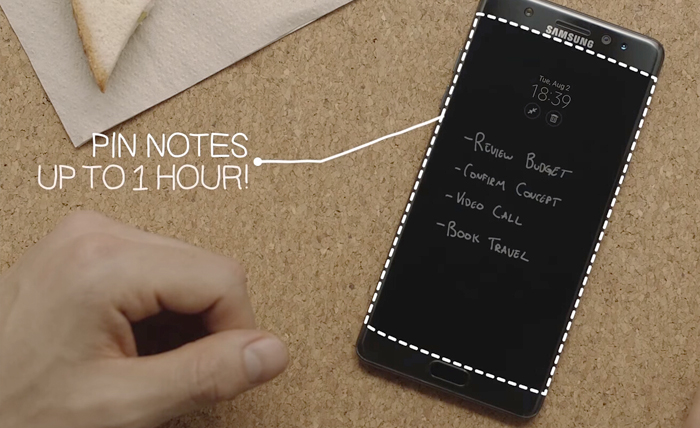 PIN NOTES
UP TO 1 HOUR!
SAMSUNG
Tue, Aug 2
18:39
-REVIEW BUDGET
-CONFIRM CONCEPT
-VIDEO CALL
-BOOK TRAVEL